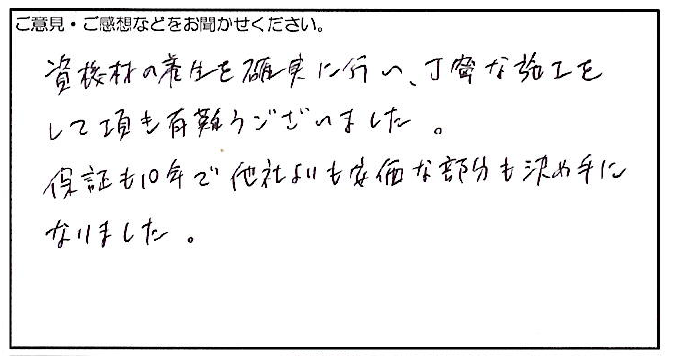 ご意見・ご感想などをお聞かせください。
資機材の養生を確実に行い、丁寧な施工を
して頂き有難うございました。
保証も10年で他社よりも安価な部分も決め手に
なりました。